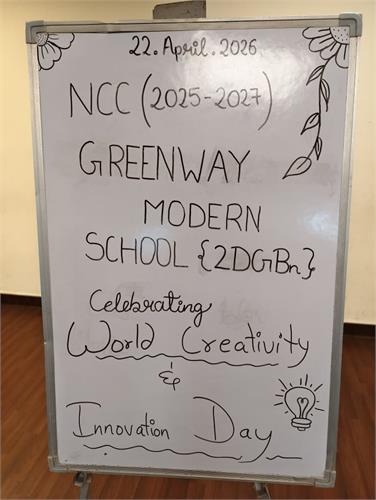 22. April. 2026
NCC (2025-2027)
GREENWAY
MODERN
SCHOOL {2DGBn}
Celebrating
World Creativity
&
Innovation Day